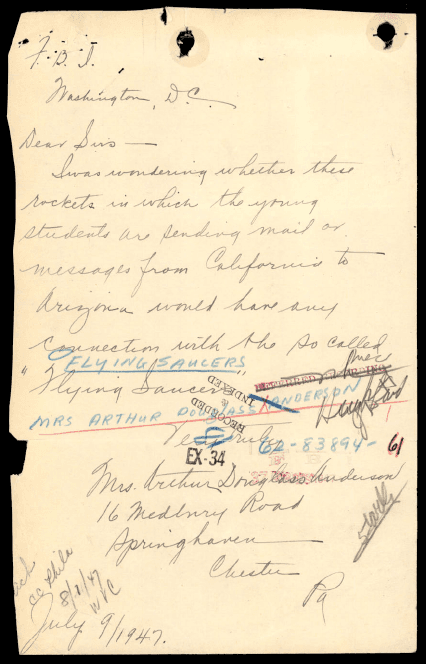 F. B. I.
Washington, D.C.
Dear Sirs —
I was wondering whether these
rockets in which the young
students are sending mail or
messages from California to
Arizona would have any
connection with the so called
"FLYING SAUCERS
"Flying Saucers
RECORDED
INDEXED
MRS ARTHUR DOUGLASS ANDERSON
Very truly
62-83894-61
EX-34
Mrs. Arthur Douglass Anderson
16 Medbury Road
Springhaven
Chester
Pa
cc Phila
8/1/47
WVC
July 9/1947.